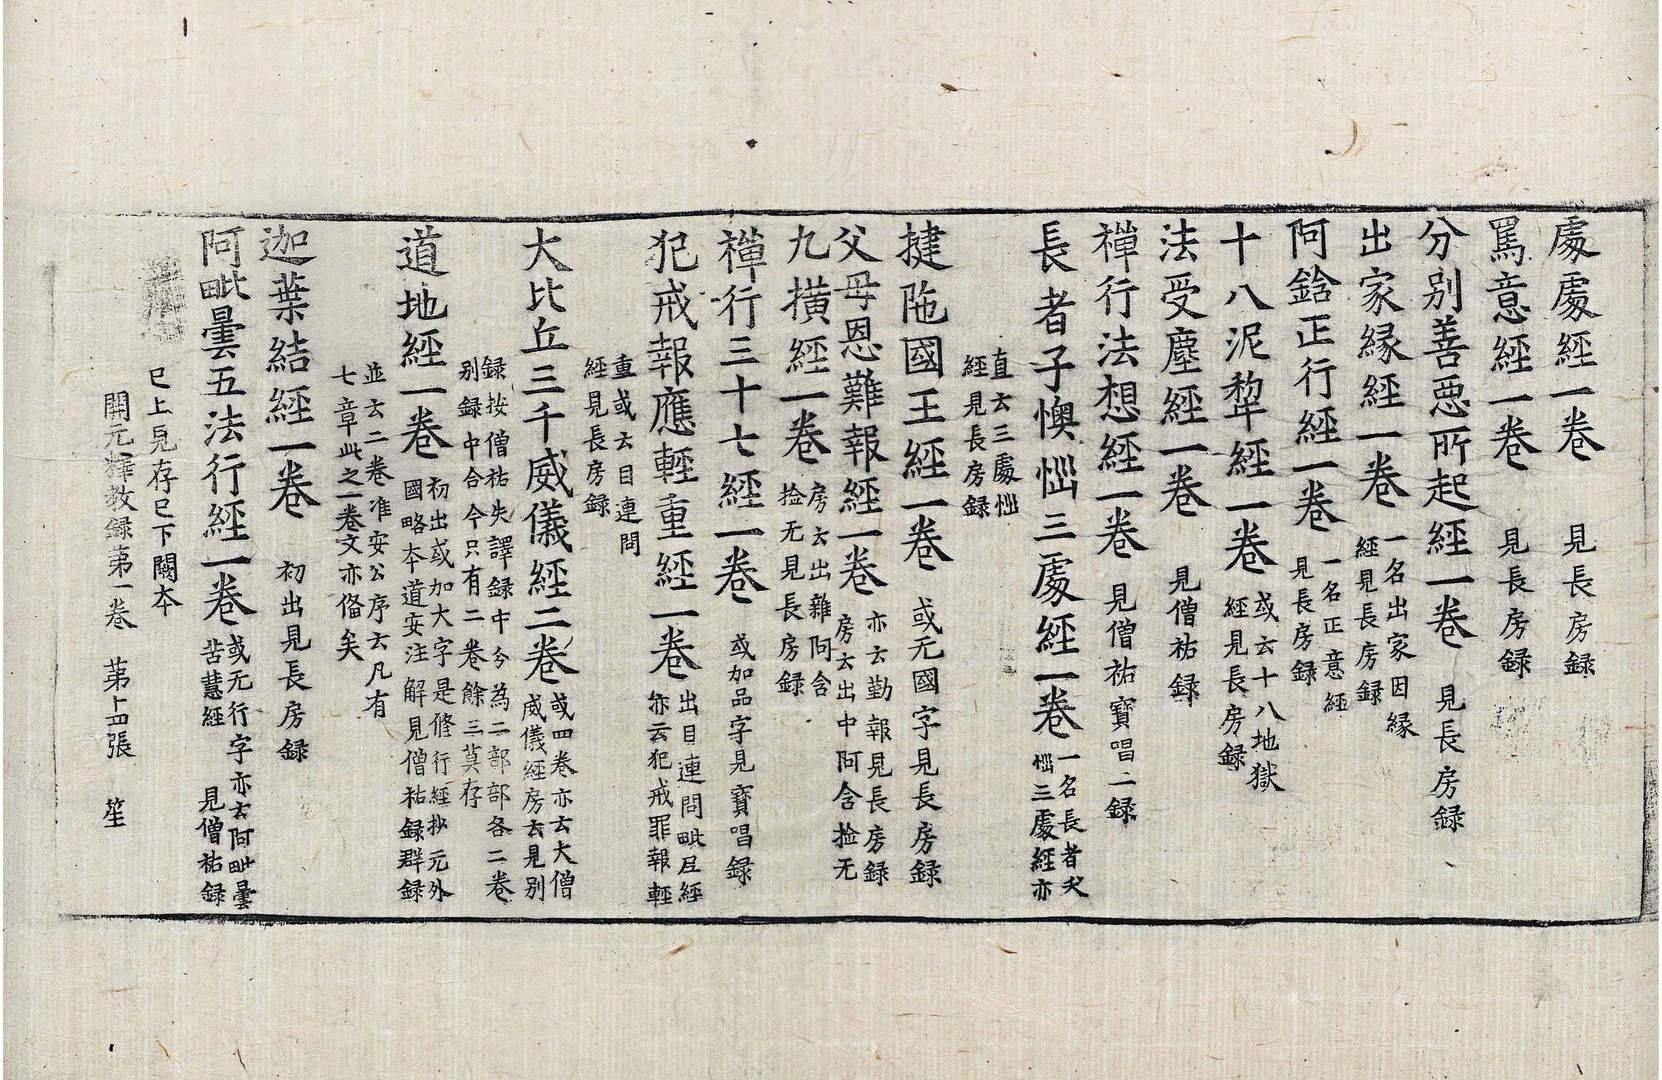 處處經一卷 見長房録
罵意經一卷 見長房録
分別善惡所起經一卷 見長房録
出家縁經一卷 一名出家因縁
經見長房録
阿鋡正行經一卷 一名正意經
見長房録
十八泥犂經一卷 或云十八地獄
經見長房録
法受塵經一卷 見僧祐録
禪行法想經一卷 見僧祐寳唱二録
長者子懊惱三處經一卷 一名長者夭
惱三處經亦
直云三處惱
經見長房録
揵陁國王經一卷 或无國字見長房録
父母恩難報經一卷 亦云勤報見長房録
房云出中阿含撿无
九横經一卷 房云出雜阿含
撿无見長房録
禪行三十七經一卷 或加品字見寳唱録
犯戒報應輕重經一卷 出目連問毗尼經
亦云犯戒罪報輕
重或云目連問
經見長房録
大比丘三千威儀經二卷 或四卷亦云大僧
威儀經房云見別
録按僧祐失譯録中今為二部部各二卷
别録中合今只有二卷餘三莫存
道地經一卷 初出或加大字是修行經抄元外
國略本道安注解見僧祐録群録
並云二卷准安公序云凡有
七章此之一卷文亦俻矣
迦葉結經一卷 初出見長房録
阿毗曇五法行經一卷 或无行字亦云阿毗曇
苦慧經 見僧祐録
已上見存已下闕本
開元釋教録第一卷 第十四張 笙